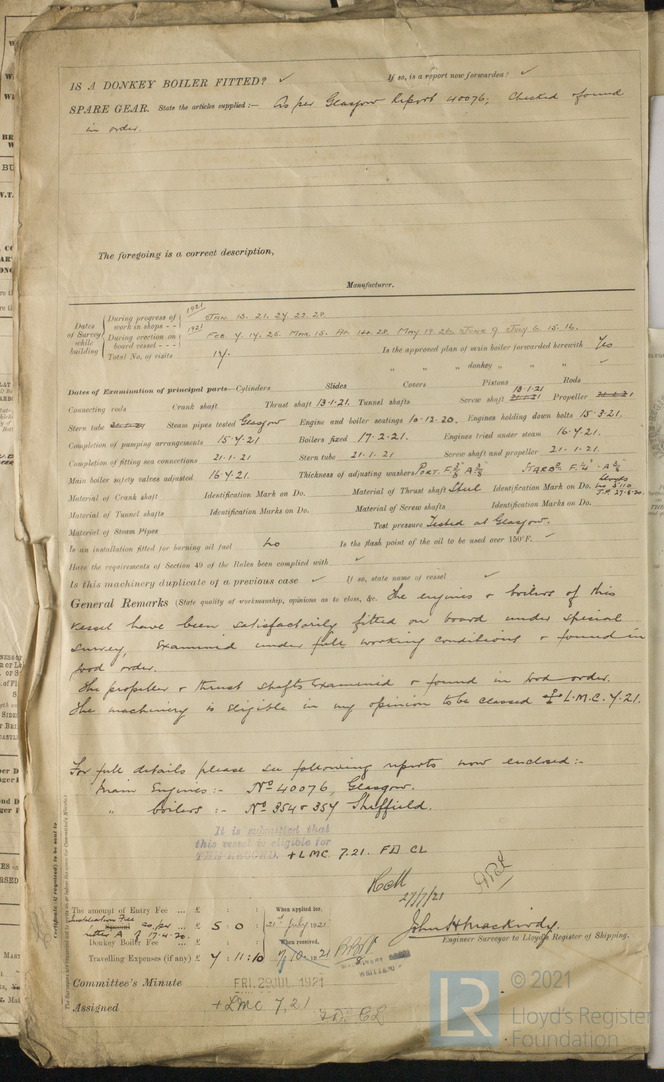 IS A DONKEY BOILER FITTED? ✓ If so, is a report now forwarded? ✓
SPARE GEAR. State the articles supplied:— As per Glasgow Report 40076, Checked & found
in order.
The foregoing is a correct description,
Manufacturer.
Dates of Survey while building
During progress of work in shops - - 1921 JAN. 13. 21. 24.
During erection on board vessel - - 1921 FEB. 4. 14. 25. MAR. 15. May 19. 26. JUNE 9 July 6. 15. 16.
Total No. of visits 17.
Is the approved plan of main boiler forwarded herewith Yes
" " " donkey " " " ✓
Dates of Examination of principal parts—Cylinders Slides Covers Pistons Rods
Connecting rods Crank shaft Thrust shaft 13.1.21. Tunnel shafts Screw shaft 13.1.21 Propeller
Stern tube Steam pipes tested Glasgow Engine and boiler seatings 10.12.20. Engines holding down bolts 15.3.21.
Completion of pumping arrangements 15.7.21 Boilers fixed 17.2.21. Engines tried under steam 16.7.21.
Completion of fitting sea connections 21.1.21 Stern tube 21.1.21 Screw shaft and propeller 21.1.21.
Main boiler safety valves adjusted 16.7.21. Thickness of adjusting washers PORT. F 3/8 A 3/8 STARBD F
Material of Crank shaft Identification Mark on Do. Material of Thrust shaft Steel Identification Mark on Do. Lloyds No 5110 27.8.20.
Material of Tunnel shafts Identification Marks on Do. Material of Screw shafts Identification Marks on Do.
Material of Steam Pipes Test pressure Tested at Glasgow.
Is an installation fitted for burning oil fuel No Is the flash point of the oil to be used over 150°F. ✓
Have the requirements of Section 49 of the Rules been complied with ✓
Is this machinery duplicate of a previous case ✓ If so, state name of vessel ✓
General Remarks (State quality of workmanship, opinions as to class, &c. The engines & boilers of this
vessel have been satisfactorily fitted on board under special
survey, examined under full working conditions & found in
good order.
The propeller & thrust shafts examined & found in good order.
The machinery is eligible in my opinion to be classed + L.M.C. 7.21.
For full details please see following reports now enclosed:-
Main Engines:- No 40076, Glasgow.
" boilers:- No 354 & 357 Sheffield.
It is submitted that
this vessel is eligible for
THE RECORD. + LMC 7.21. FD CL
27/7/21
The amount of Entry Fee ... £ : :
Installation Fee as per £ 5 : 0 :
letter A of 17.4.20.
Donkey Boiler Fee ... £ : :
Travelling Expenses (if any) £ 4 : 11 : 10
When applied for, 21st July 1921
When received, 1921
John H Mackirdy.
Engineer Surveyor to Lloyd's Register of Shipping.
Committee's Minute FRI. 29 JUL 1921
Assigned + LMC 7.21
FD CL
© 2021
Lloyd's Register
Foundation
LR